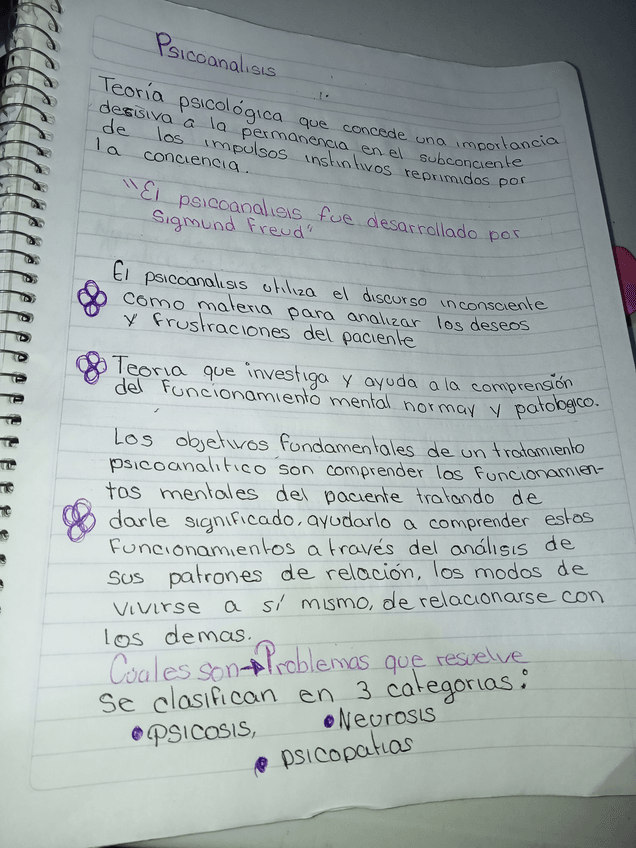 Psicoanalisis
Teoría psicológica que concede una importancia
desisiva a la permanencia en el subconciente
de los impulsos instintivos reprimidos por
la conciencia.
"El psicoanalisis fue desarrollado por
Sigmund Freud"
El psicoanalisis utiliza el discurso inconsciente
como materia para analizar los deseos
y frustraciones del paciente
Teoria que investiga y ayuda a la comprensión
del funcionamiento mental normay y patologico.
Los objetivos fundamentales de un tratamiento
psicoanalitico son comprender los funcionamien-
tos mentales del paciente tratando de
darle significado, ayudarlo a comprender estos
funcionamientos a través del análisis de
sus patrones de relación, los modos de
vivirse a sí mismo, de relacionarse con
los demas.
Cuales son→Problemas que resuelve
Se clasifican en 3 categorias:
• PSICOSIS, • Neurosis
• psicopatias